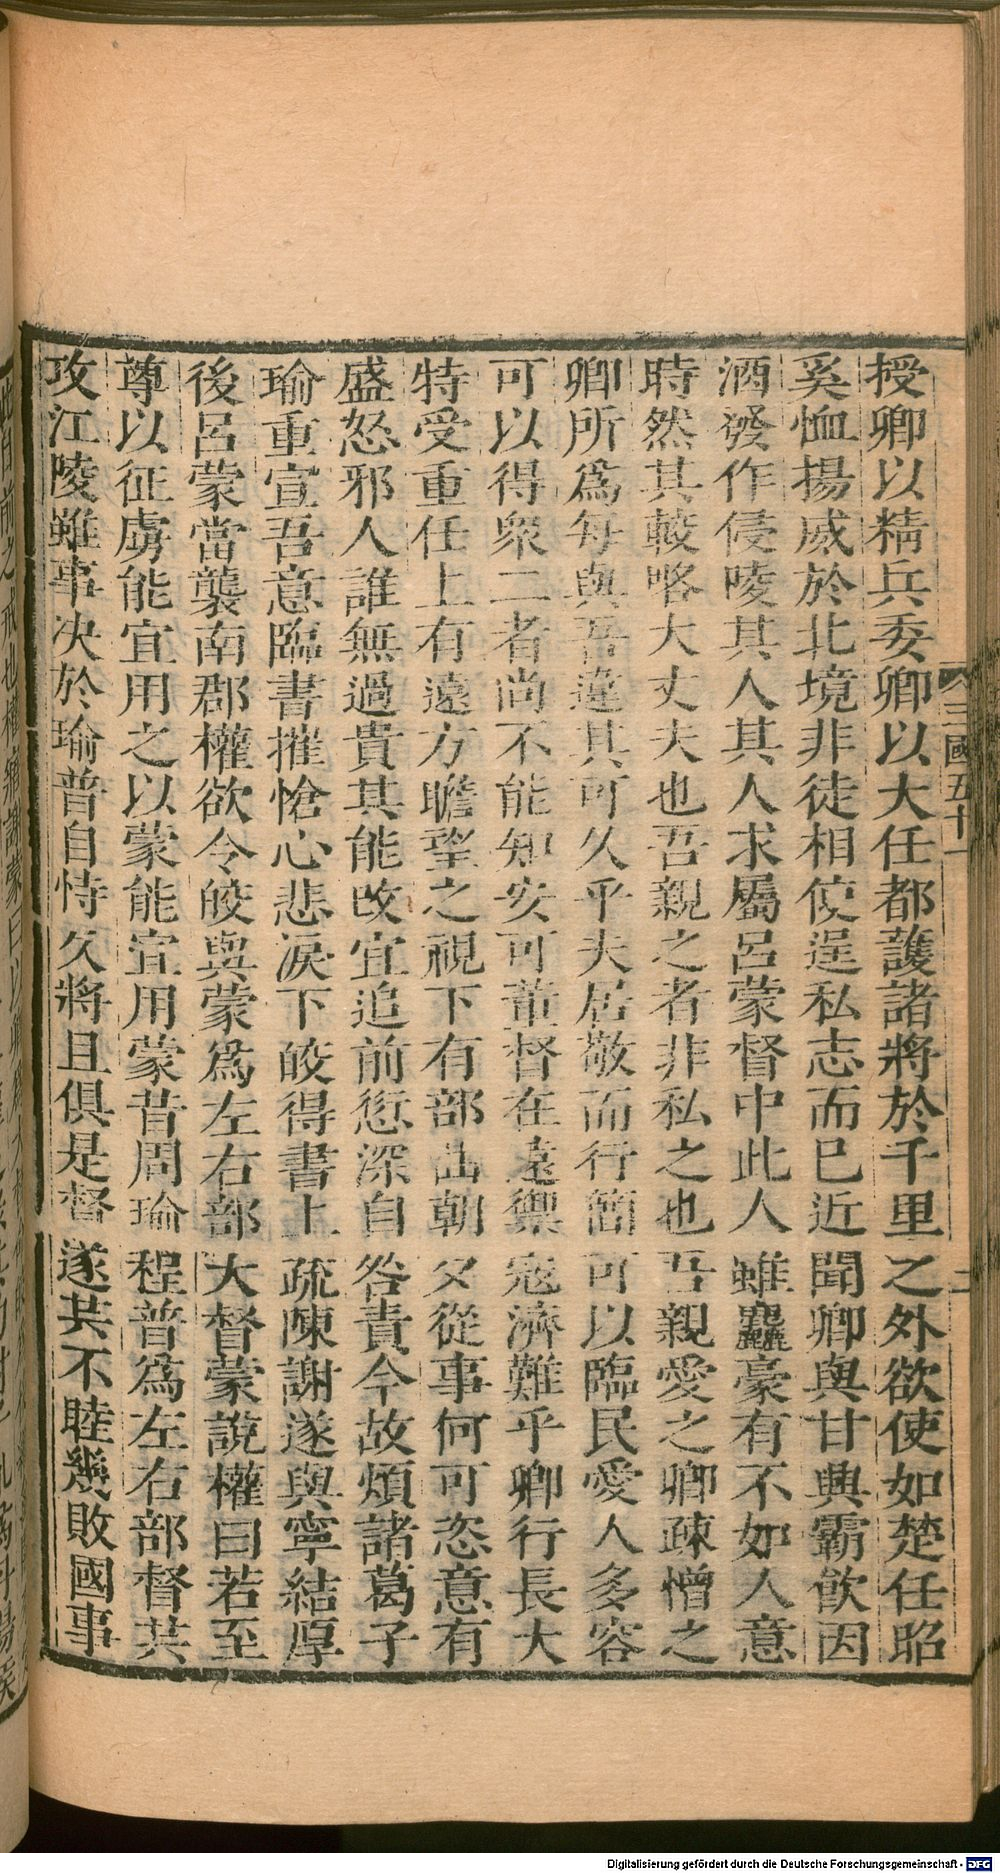 授卿以精兵委卿以大任都護諸將於千里之外欲使如楚任昭
奚恤揚威於北境非徒相使逞私志而已近聞卿與甘興霸飲因
酒發作侵陵其人其人求屬呂蒙督中此人雖麤豪有不如人意
時然其較略大丈夫也吾親之者非私之也吾親愛之卿疎憎之
卿所爲每與吾違其可久乎夫居敬而行簡可以臨民愛人多容
可以得衆二者尚不能知安可董督在遠禦寇濟難乎卿行長大
特受重任上有遠方瞻望之視下有部曲朝夕從事何可恣意有
盛怒邪人誰無過貴其能改宜追前愆深自咎責今故煩諸葛子
瑜重宣吾意臨書摧愴心悲淚下皎得書上疏陳謝遂與寧結厚
後呂蒙當襲南郡權欲令皎與蒙爲左右部大督蒙說權曰若至
尊以征虜能宜用之以蒙能宜用蒙昔周瑜程普爲左右部督共
攻江陵雖事決於瑜普自恃久將且俱是督遂共不睦幾敗國事
三國五十一
二
Digitalisierung gefördert durch die Deutsche Forschungsgemeinschaft - DFG